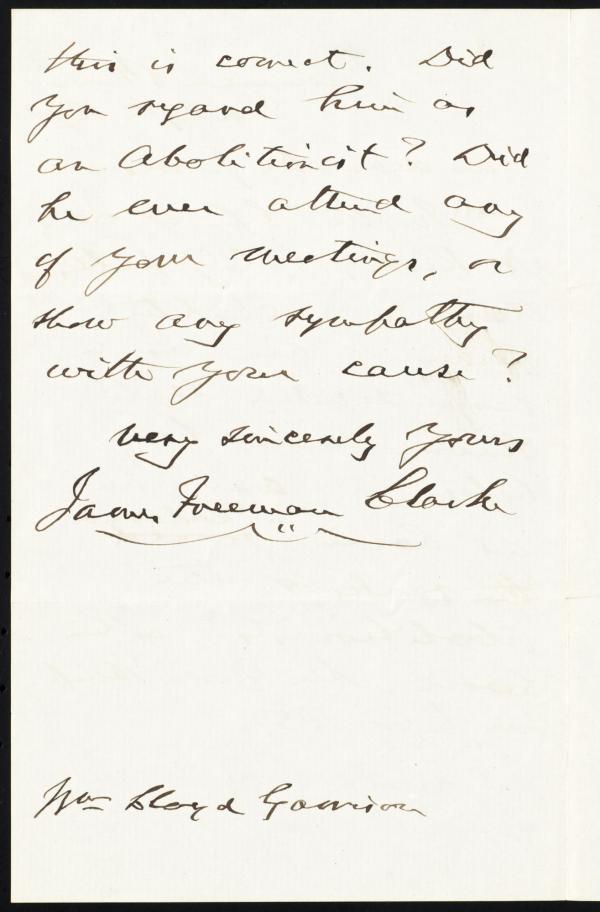 this is correct. Did
you regard him as
an Abolitionist? Did
he ever attend any
of your meetings, or
show any sympathy
with your cause?
very sincerely yours
James Freeman Clarke
Wm Lloyd Garrison